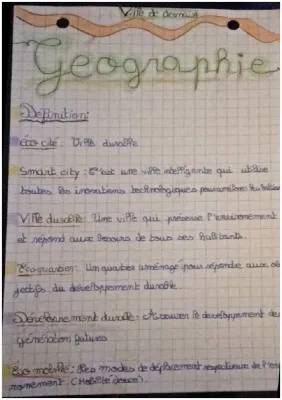 Ville de demain
Geographie
Définition:
Éco cité: Ville durable
Smart city: C'est une ville intelligente qui utilise
toutes les inovations technologiques pour
Ville durable: Une ville qui préserve l'environement
et répond aux besoins de tous ses habitants.
Écoquartier: Un quartier aménagé pour répondre aux ob
jectifs du développement durable.
Développement durable: Assurer le développement de
génération futures
Éco mobilité: Des modes de déplacement respectueux de l'en
ronnement. (Mobilité douce).